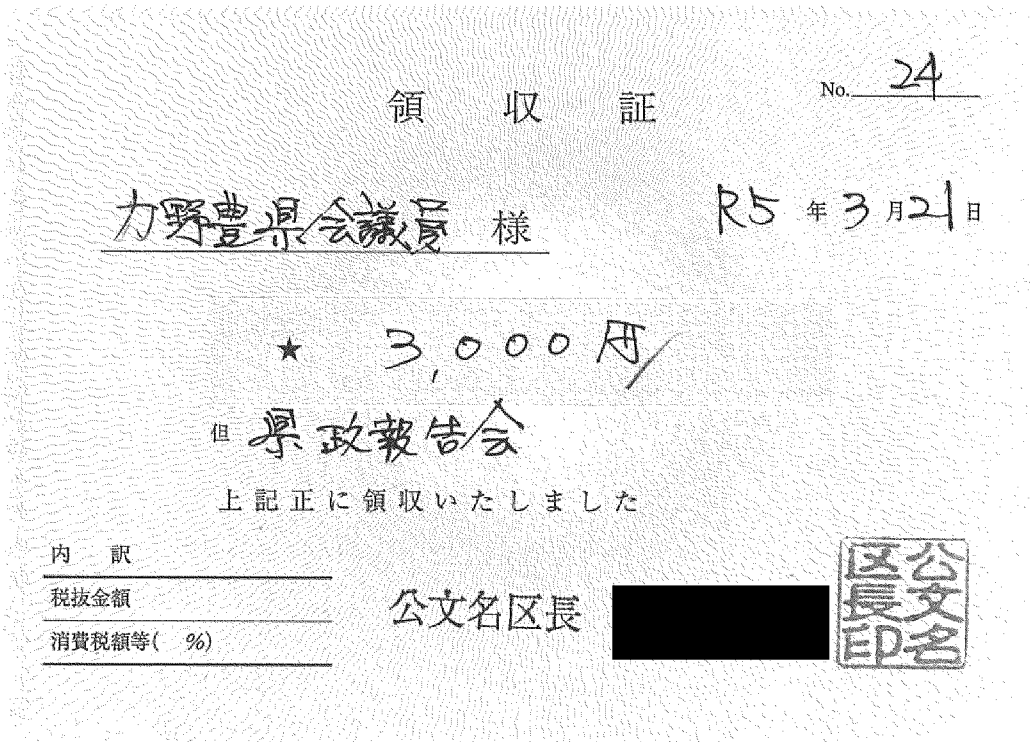 No. 24
領収証
力野豊県会議員 様
R5年3月21日
★ 3,000円
但 県政報告会
上記正に領収いたしました
内訳
税抜金額
消費税額等( %)
公文名区長
公文名区長印